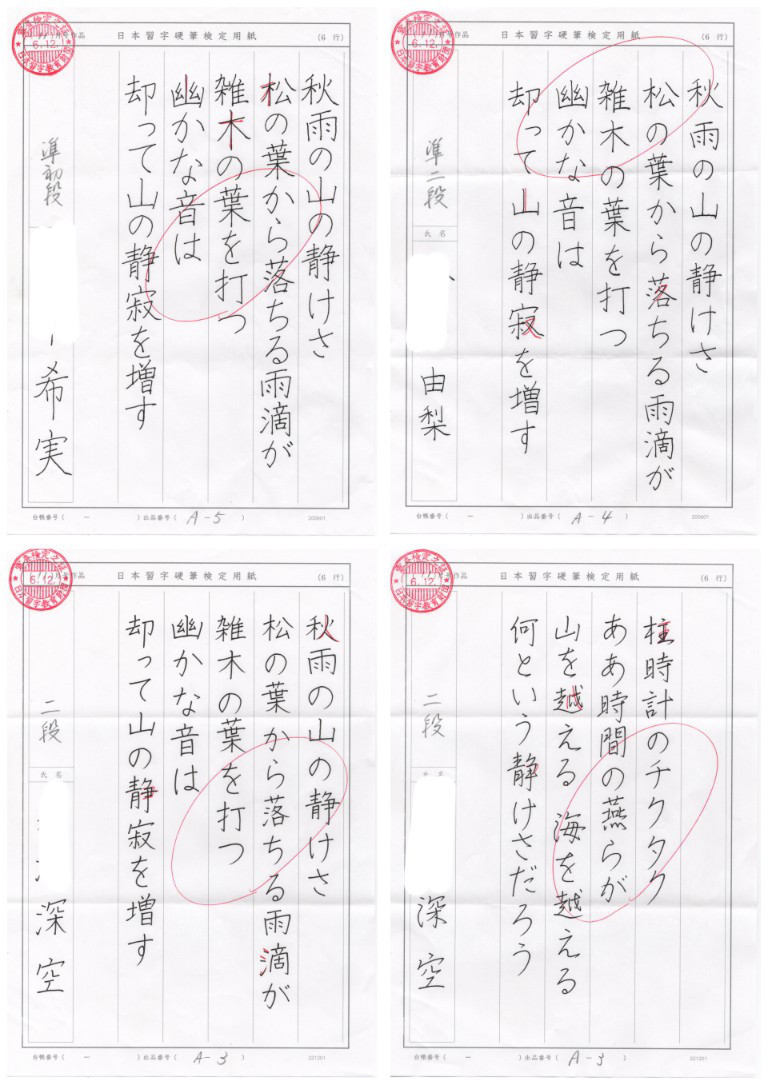 日本習字硬筆検定用紙
(6行)
6.12.
日本習字教育財団
秋雨の山の静けさ
松の葉から落ちる雨滴が
雑木の葉を打つ
幽かな音は
却って山の静寂を増す
準初段
希実
台帳番号( － )出品番号( A-5 )
200901
日本習字硬筆検定用紙
(6行)
6.12.
日本習字教育財団
秋雨の山の静けさ
松の葉から落ちる雨滴が
雑木の葉を打つ
幽かな音は
却って山の静寂を増す
準二段
氏名
由梨
台帳番号( － )出品番号( A-4 )
200901
作品
日本習字硬筆検定用紙
(6行)
6.12.
日本習字教育財団
秋雨の山の静けさ
松の葉から落ちる雨滴が
雑木の葉を打つ
幽かな音は
却って山の静寂を増す
二段
氏名
深空
台帳番号( － )出品番号( A-3 )
221201
作品
日本習字硬筆検定用紙
(6行)
6.12.
日本習字教育財団
柱時計のチクタク
ああ時間の燕らが
山を越える 海を越える
何という静けさだろう
二段
氏名
深空
台帳番号( － )出品番号( A-3 )
221201